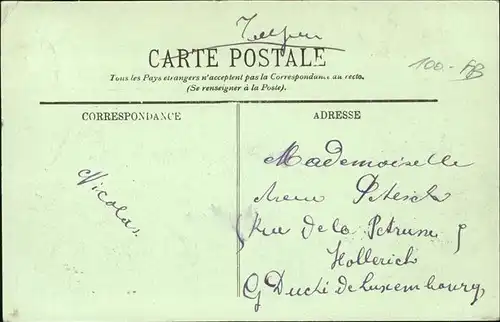 CARTE POSTALE
Tous les Pays étrangers n'acceptent pas la Correspondance au recto.
(Se renseigner à la Poste).
100.-
CORRESPONDANCE
ADRESSE
Nicolas.
Mademoiselle
Rue de la
Hollerich
G Duché de Luxembourg,